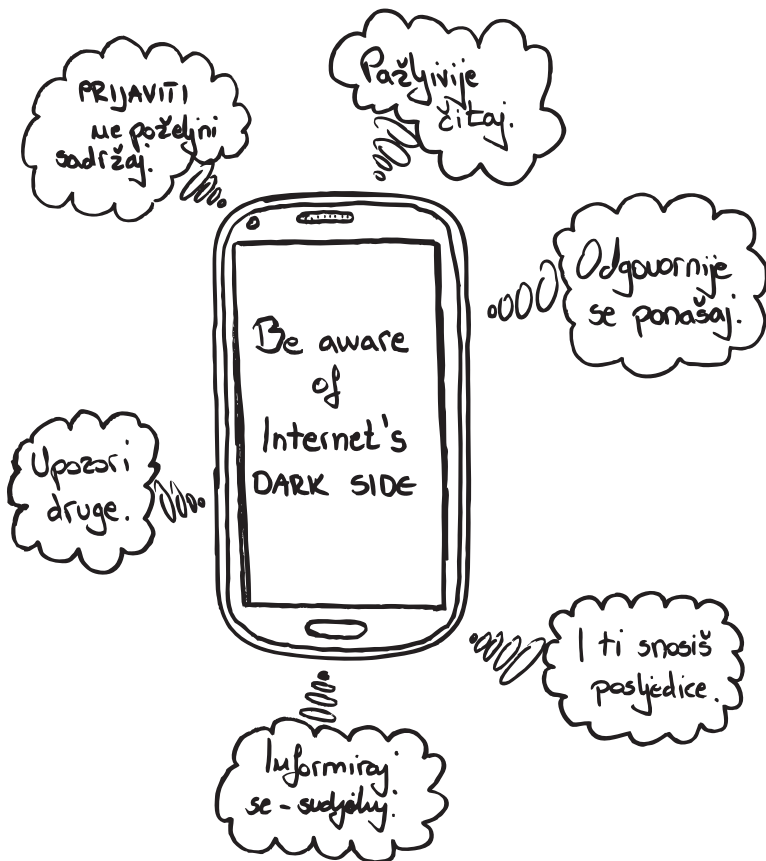 PRIJAVITI
ne poželjni
sadržaj.
Pažljivije
čitaj.
Odgovornije
se ponašaj.
Be aware
of
Internet's
DARK SIDE
Upozori
druge.
I ti snosiš
posljedice.
Informiraj
se - sudjeluj.